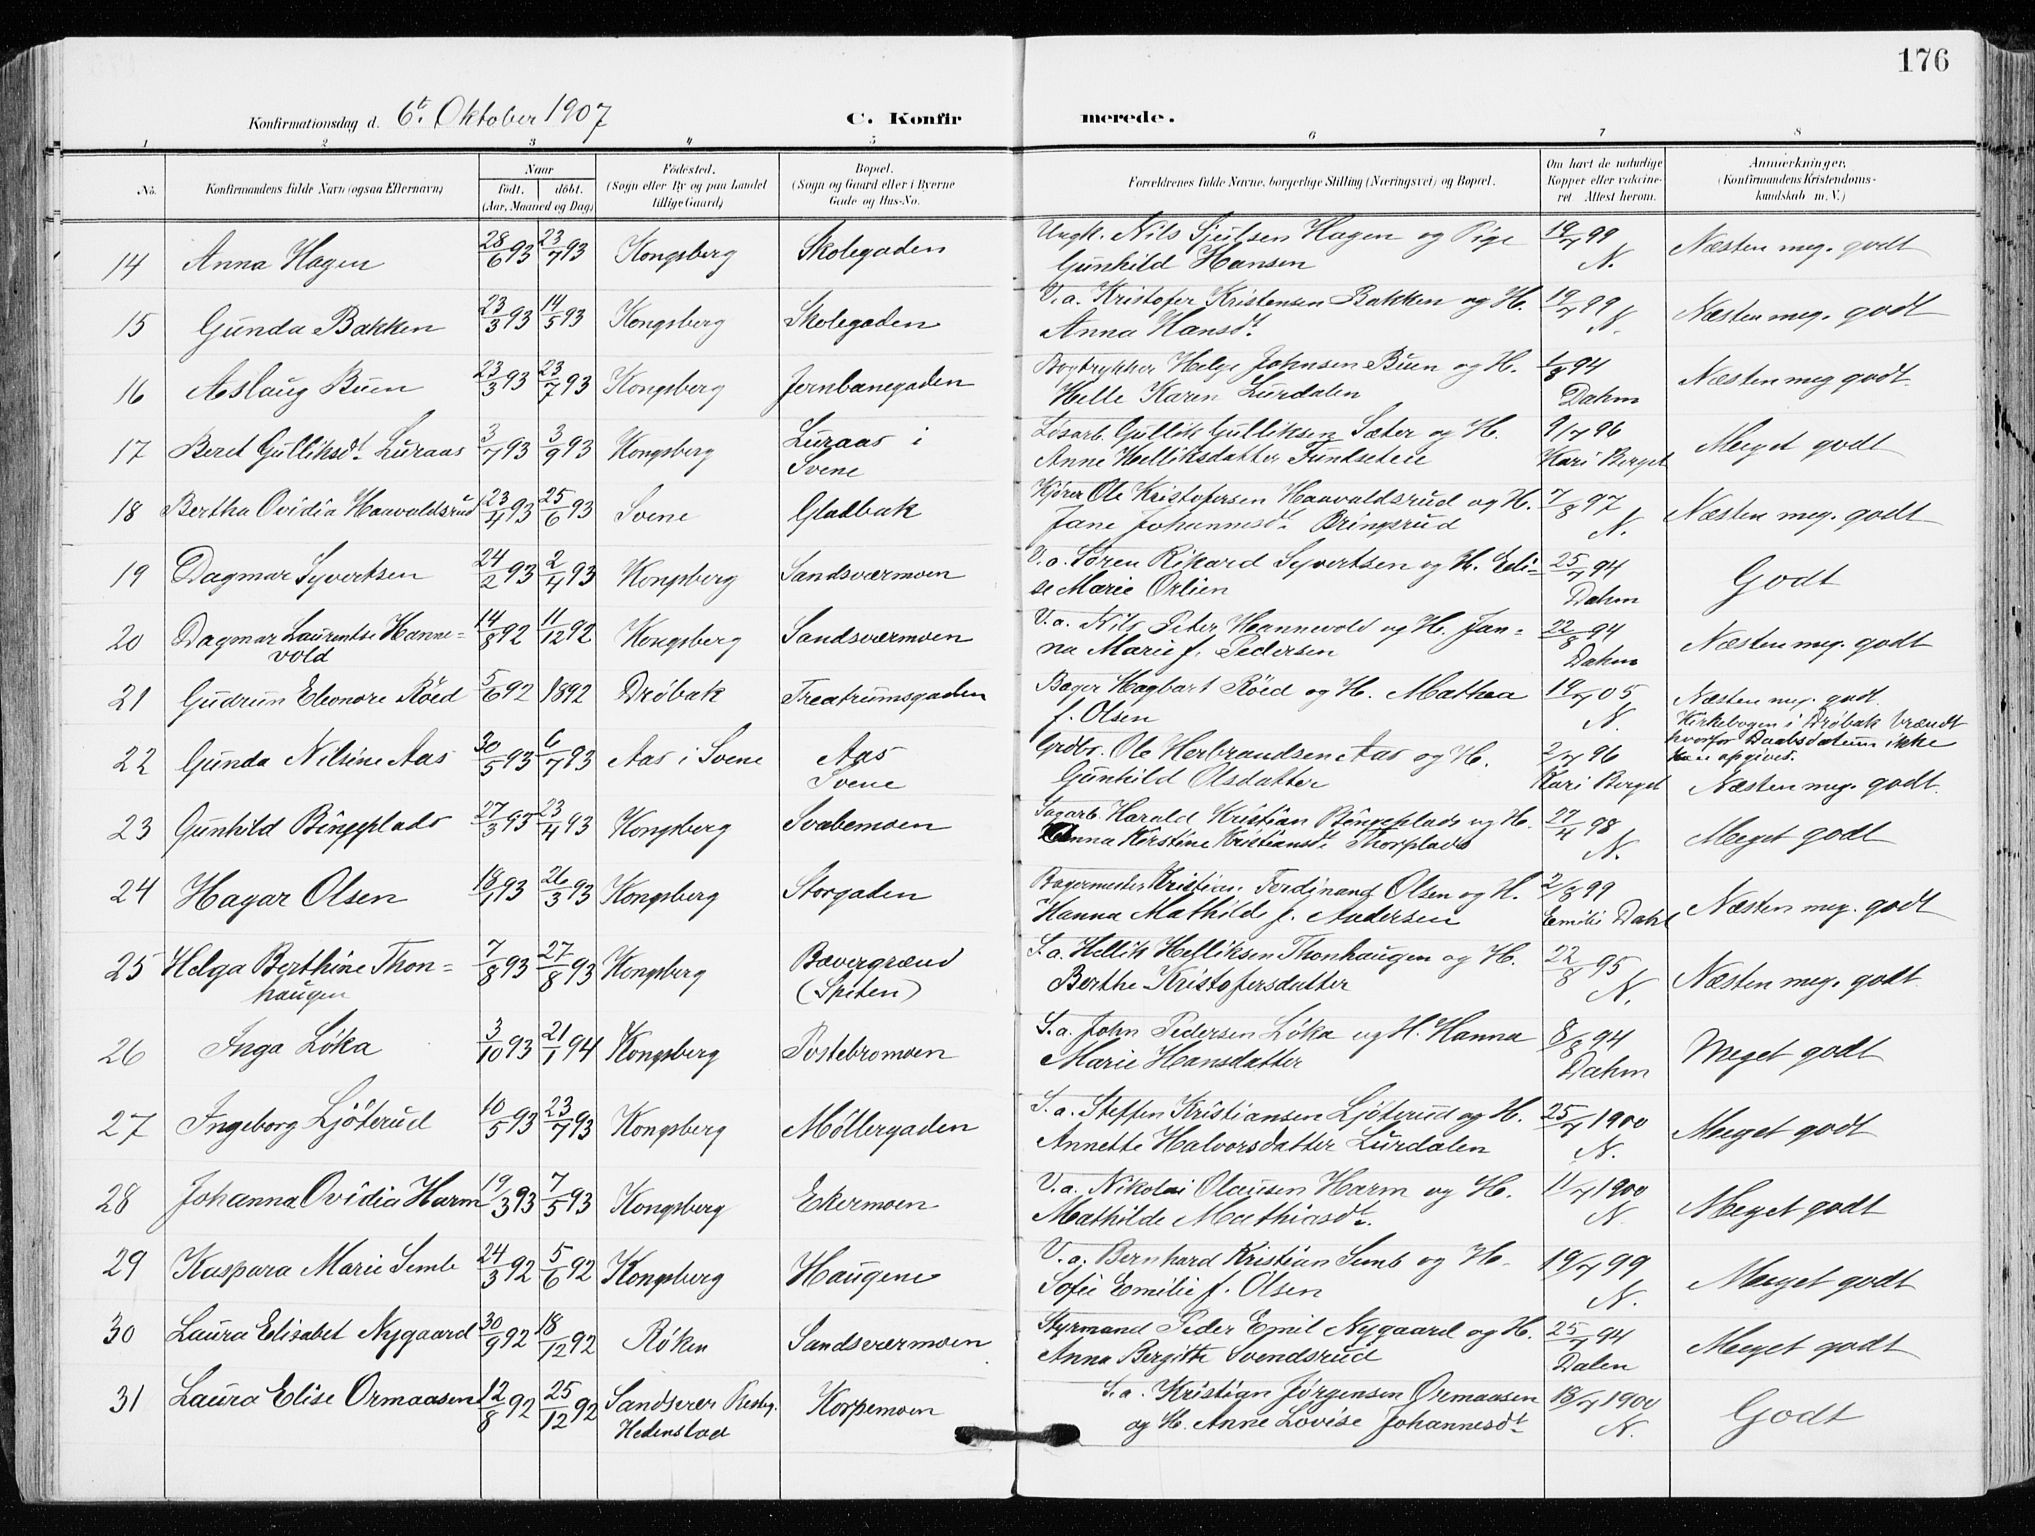 176
Konfirmationsdag d. 6te Oktober 1907 C. Konfirmerede.
1 2 3 4 5 6 7 8
No. Konfirmandens fulde Navn (ogsaa Efternavn) Naar født. døbt. (Aar, Maaned og Dag) Födested. (Sogn eller By og paa Landet tillige Gaard) Bopæl. (Sogn og Gaard eller i Byerne Gade og Hus-No. Forældrenes fulde Navne, borgerlige Stilling (Næringsvei) og Bopæl. Om havt de naturlige Kopper eller vakcineret Attest herom. Anmerkninger. (Konfirmandens Kristendomskundskab m. V.)
14 Anna Hagen 28/6 93 23/7 93 Kongsberg Skolegaden Ungk. Nils Sjulsen Hagen og Pige 19/7 99 Næsten meg. godt
Gunhild Hansen N.
15 Gunda Bakken 23/3 93 14/5 93 Kongsberg Skolegaden V.a. Kristofer Kristensen Bakken og H. 19/7 99 Næsten meg. godt
Anna Hansdt. N.
16 Aslaug Buen 23/3 93 23/7 93 Kongsberg Jernbanegaden Bogtrykker Helge Johnsen Buen og H. 1/8 94 Næsten meg godt
Helle Karen Lurdalen Dahm
17 Beret Gulliksdt. Luraas 3/7 93 3/9 93 Kongsberg Luraas i Løsarb. Gullik Gulliksen Sæter og H. 9/7 96 Meget godt
Svene Anne Helliksdatter Tundseteie Kari Berget
18 Bertha Ovidia Haavaldsrud 23/4 93 25/6 93 Svene Gladbak Kjører Ole Kristofersen Haavaldsrud og H. 7/8 97 Næsten meg. godt
Jane Johannesdt. Bringsrud N.
19 Dagmar Syvertsen 24/2 93 2/4 93 Kongsberg Sandsværmoen V.a. Søren Rikard Syvertsen og H. Eli= 25/7 94 Godt
se Marie Orlien Dahm
20 Dagmar Laurentse Hanne= 14/8 92 11/12 92 Kongsberg Sandsværmoen V.a. Nils Peter Hannevold og H. Jan= 22/8 94 Næsten meg. godt
vold na Marie f. Pedersen Dahm
21 Gudrun Eleonore Röed 5/6 92 1892 Drøbak Treatrumsgaden Bager Hagbart Röed og H. Mathea 19/7 05 Næsten meg. godt.
f. Olsen N. Kirkebogen i Drøbak brændt
hvorfor Daabsdatum ikke
kan opgives.
22 Gunda Nilsine Aas 30/5 93 6/7 93 Aas i Svene Aas Grdbr. Ole Herbrandsen Aas og H. 2/7 96
Svene Gunhild Olsdatter Kari Berget Næsten meg. godt.
23 Gunhild Bingeplads 27/3 93 23/4 93 Kongsberg Svabemoen Sagarb. Harald Kristian Bingeplads og H. 27/4 98 Meget godt
Anna Kirstine Kristiansdt. Thorplads N.
24 Hagar Olsen 18/1 93 26/3 93 Kongsberg Storgaden Bagermester Kristian Ferdinand Olsen og H. 2/8 99 Næsten meg. godt
Hanna Mathilde f. Andersen Emilie Dahl
25 Helga Berthine Thon= 7/8 93 27/8 93 Kongsberg Bævergrænd S.a. Hellik Helliksen Thonhaugen og H. 22/8 95 Næsten meg. godt
haugen (Spiten) Berthe Kristofersdatter N.
26 Inga Löka 3/10 93 21/1 94 Kongsberg Postebromoen S.a. John Pedersen Löka og H. Hanna 8/8 94 Meget godt
Marie Hansdatter Dahm
27 Ingeborg Ljöterud 10/5 93 23/7 93 Kongsberg Møllergaden S.a. Steffen Kristiansen Ljöterud og H. 25/7 1900 Meget godt
Annette Halvorsdatter Lurdalen N.
28 Johanna Ovidia Harm 19/3 93 7/5 93 Kongsberg Ekermoen V.a. Nikolai Olausen Harm og H. 11/7 1900 Meget godt
Mathilde Mathiasdt. N.
29 Kaspara Marie Semb 24/3 92 5/6 92 Kongsberg Haugene V.a. Bernhard Kristian Semb og H. 19/7 99 Meget godt
Sofie Emilie f. Olsen N.
30 Laura Elisabet Nygaard 30/9 92 18/12 92 Røken Sandsværmoen Styrmand Peder Emil Nygaard og H. 25/7 94 Meget godt
Anna Bergitte Svendsrud Dalen
31 Laura Elise Ormaasen 12/8 92 25/12 92 Sandsvær Korpemoen S.a. Kristian Jørgensen Ormaasen 18/7 1900 Godt
Hedenstad og H. Anne Lovise Johannesdt. N.